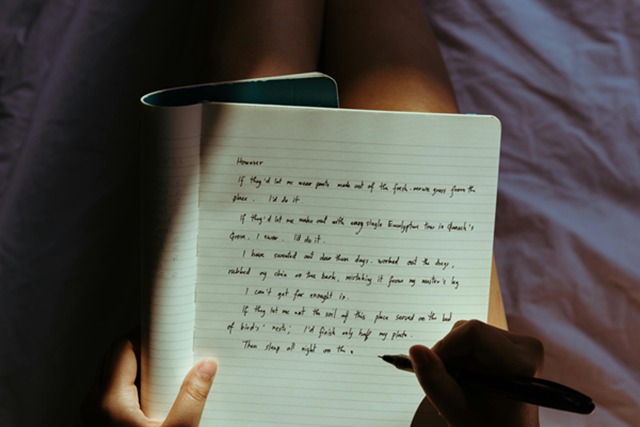 However
If they'd let me wear pants made out of the fresh-mown grass from the
place. I'd do it
If they'd let me make out with every single Eucalyptus tree in
Grove, I swear. I'd do it.
I have sweated out these days. worked out the
rubbed my chin on the bark, mistaking it from my master's leg
I can't get far enough in.
If they let me eat the soil of this place served on the bed
of birds' nests; I'd finish only half my plate.
Then sleep all night on the